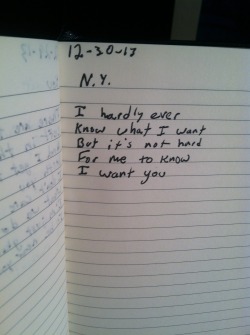 12-30-13
N.Y.
I hardly ever
Know what I want
But it's not hard
For me to know
I want you